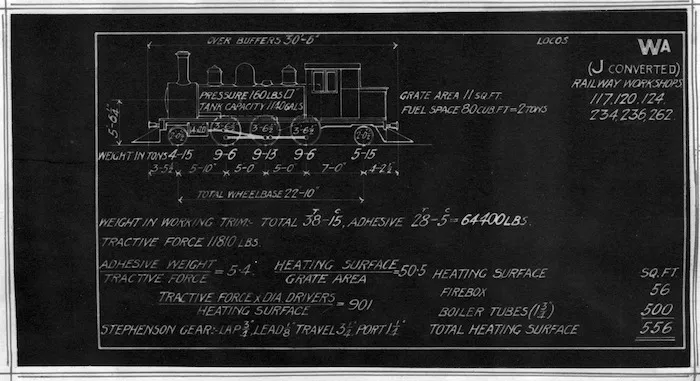 OVER BUFFERS 30'-6"
LOCOS
WA
(J CONVERTED)
RAILWAY WORKSHOPS
117.120.124.
234.236.262.
PRESSURE 160 LBS □"
TANK CAPACITY 1140 GALS
GRATE AREA 11 SQ.FT.
FUEL SPACE 80 CUB.FT=2 TONS
3-6½ 3-6½ 3-6½
WEIGHT IN TONS 4-15 9-6 9-13 9-6 5-15
3-5½ 5-10" 5-0" 5-0" 7-0" 4-2½
TOTAL WHEELBASE 22-10"
WEIGHT IN WORKING TRIM:- TOTAL 38T-15C, ADHESIVE 28T-5C=64400 LBS.
TRACTIVE FORCE 11810 LBS.
ADHESIVE WEIGHT/TRACTIVE FORCE = 5·4. HEATING SURFACE/GRATE AREA = 50·5
TRACTIVE FORCE X DIA. DRIVERS/HEATING SURFACE = 901
STEPHENSON GEAR:- LAP ¾", LEAD ⅛" TRAVEL 3¼" PORT 1¼"
HEATING SURFACE SQ.FT
FIREBOX 56
BOILER TUBES (1¾") 500
TOTAL HEATING SURFACE 556